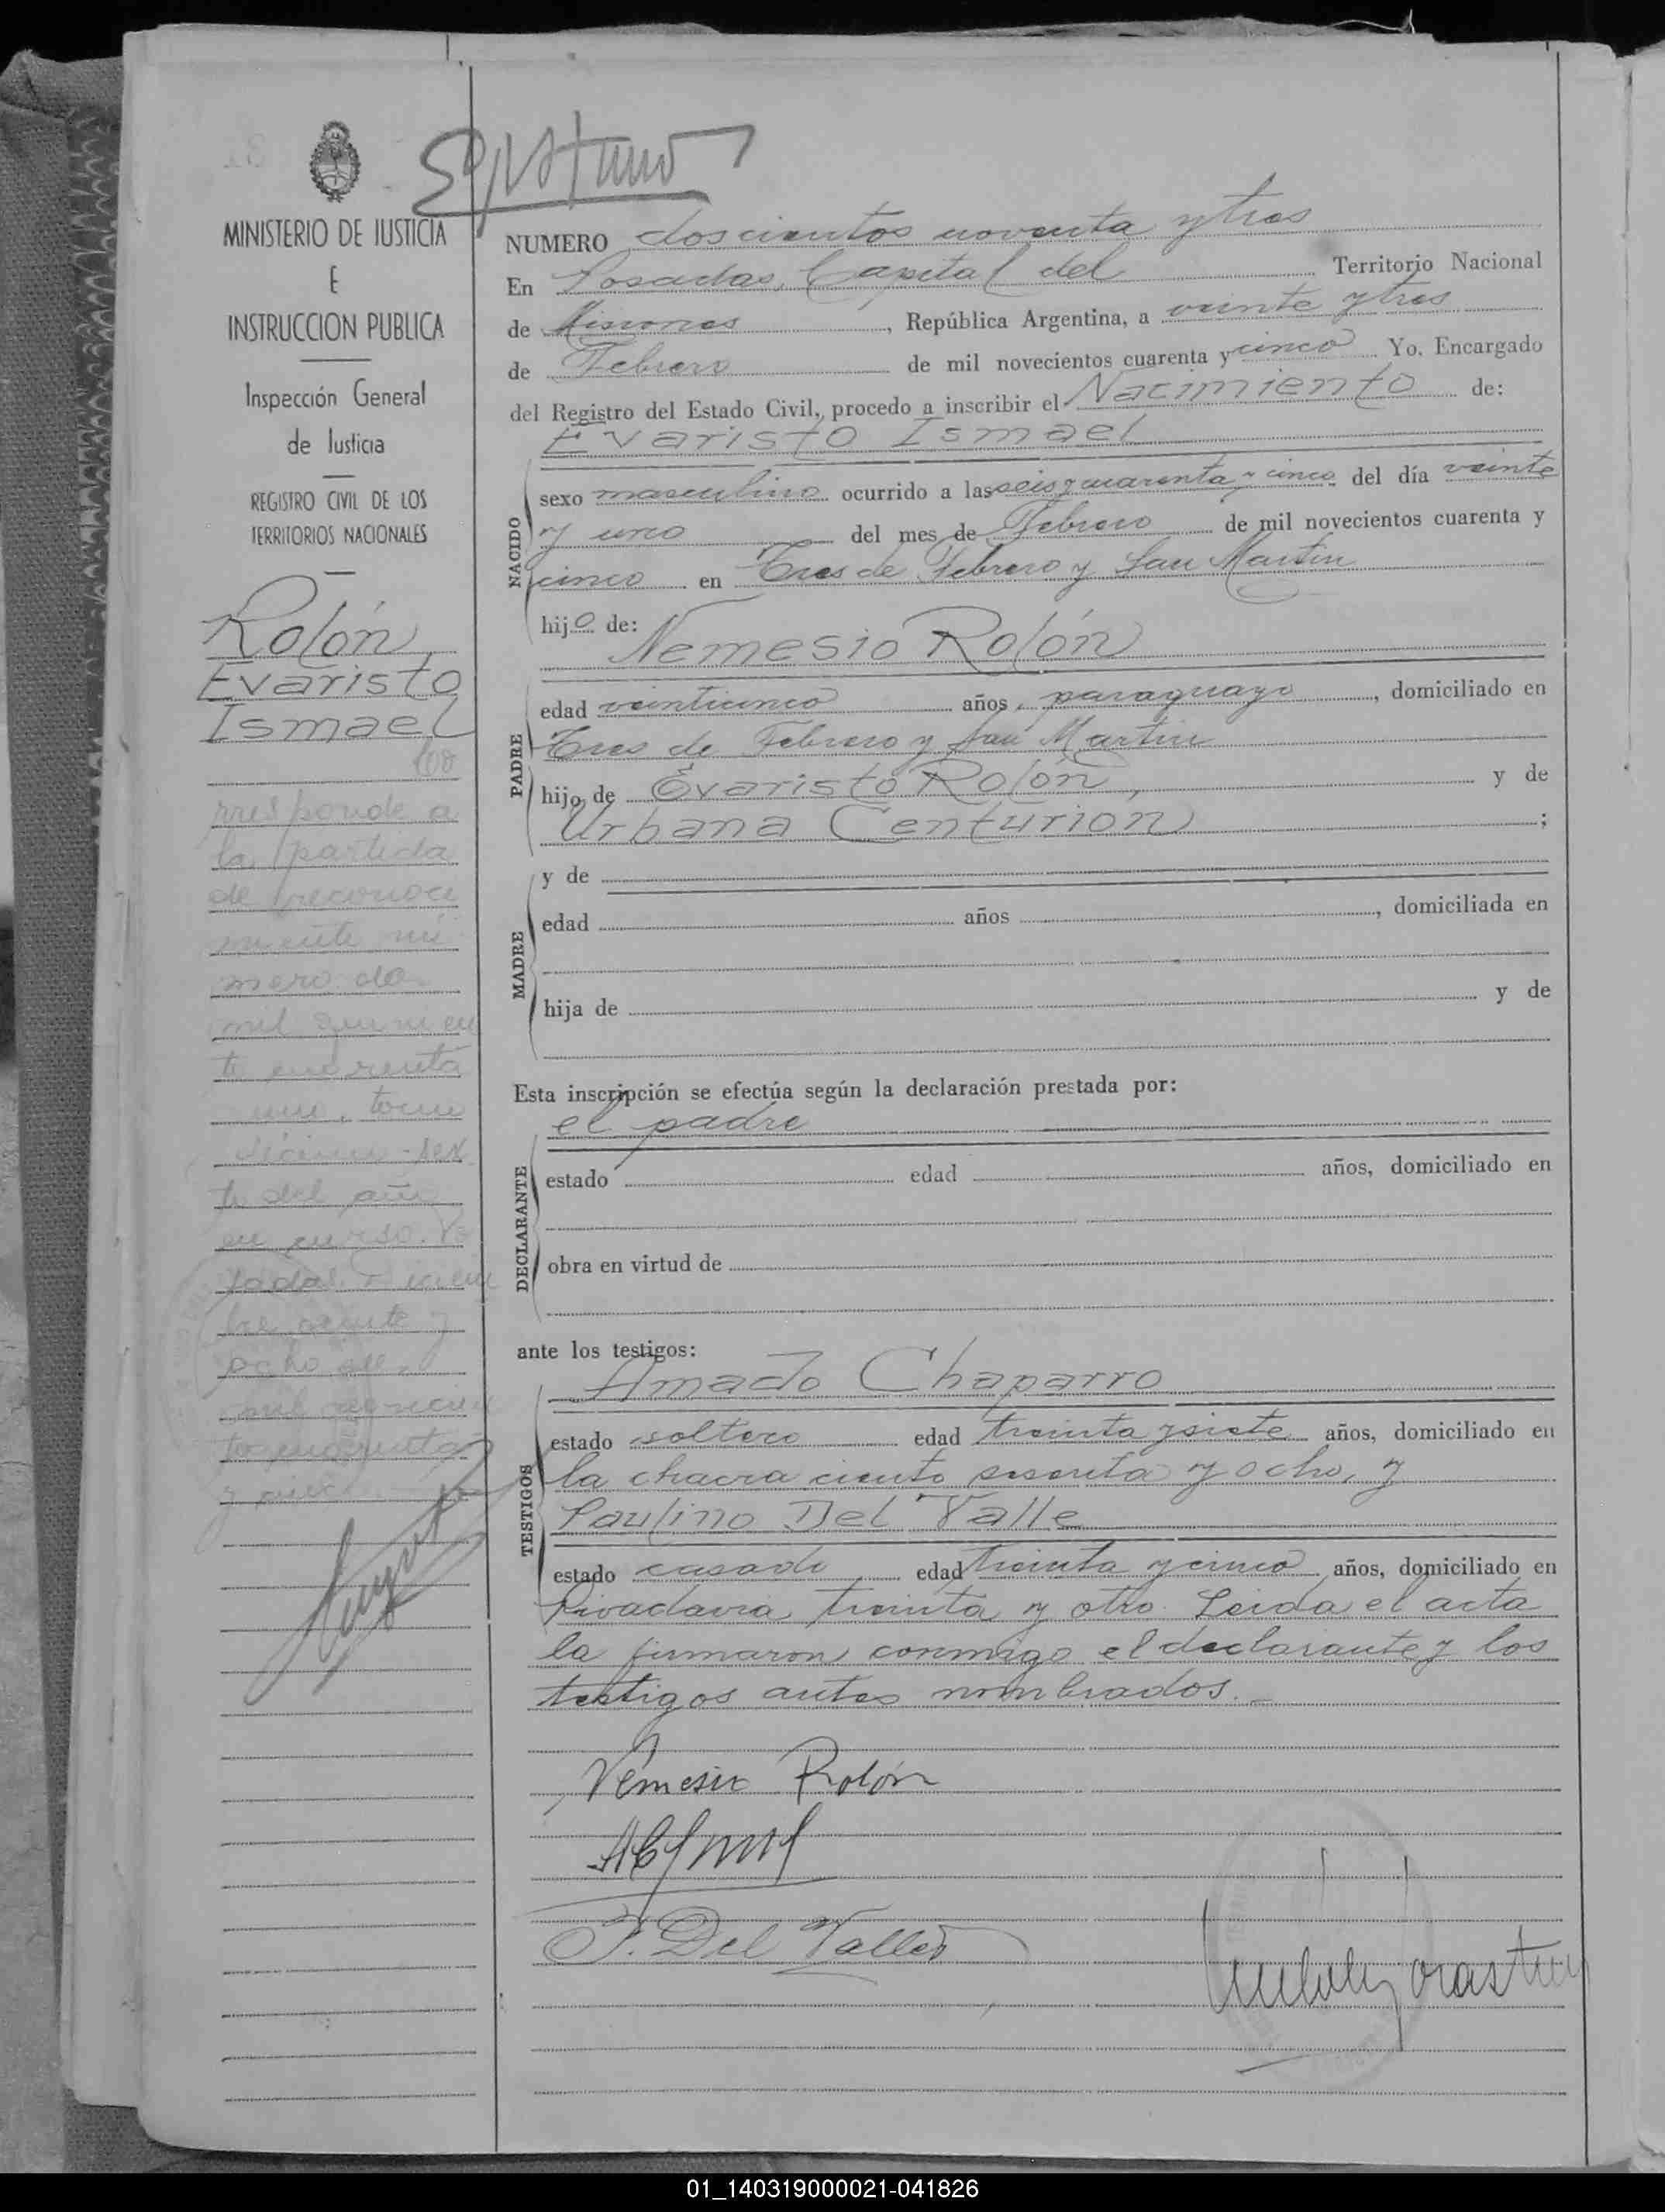 MINISTERIO DE JUSTICIA
E
INSTRUCCION PUBLICA
Inspección General
de Justicia
REGISTRO CIVIL DE LOS
TERRITORIOS NACIONALES
Rolón
Evaristo
Ismael
Co
rresponde a
la partida
de reconoci
miento nú
mero dos
mil quinien
tos cuarenta
uno, tomo
décimo sex
to del año
en curso. Po
sadas
bre veinte y
ocho de
mil novecien
tos cuarenta
y cinco
NUMERO doscientos noventa y tres
En Posadas, Capital del Territorio Nacional
de Misiones, República Argentina, a veinte y tres
de Febrero de mil novecientos cuarenta y cinco Yo. Encargado
del Registro del Estado Civil, procedo a inscribir el Nacimiento de:
Evaristo Ismael
NACIDO
sexo masculino ocurrido a las seis y cuarenta y cinco del día veinte
y uno del mes de Febrero de mil novecientos cuarenta y
cinco en Tres de Febrero y San Martin
hijo de:
Nemesio Rolón
PADRE
edad veinticinco años, paraguayo, domiciliado en
Tres de Febrero y San Martin
hijo de Evaristo Rolón, y de
Urbana Centurion;
y de
MADRE
edad años, domiciliada en
hija de y de
Esta inscripción se efectúa según la declaración prestada por:
el padre
DECLARANTE
estado edad años, domiciliado en
obra en virtud de
ante los testigos:
Amado Chaparro
TESTIGOS
estado soltero edad treinta y siete años, domiciliado en
la chacra ciento sesenta y ocho, y
Paulino Del Valle
estado casado edad treinta y cinco años, domiciliado en
Rivadavia treinta y otro. Leida el acta
la firmaron conmigo el declarante y los
testigos antes nombrados.-
Nemesio Rolón
P. Del Valle
01_140319000021-041826